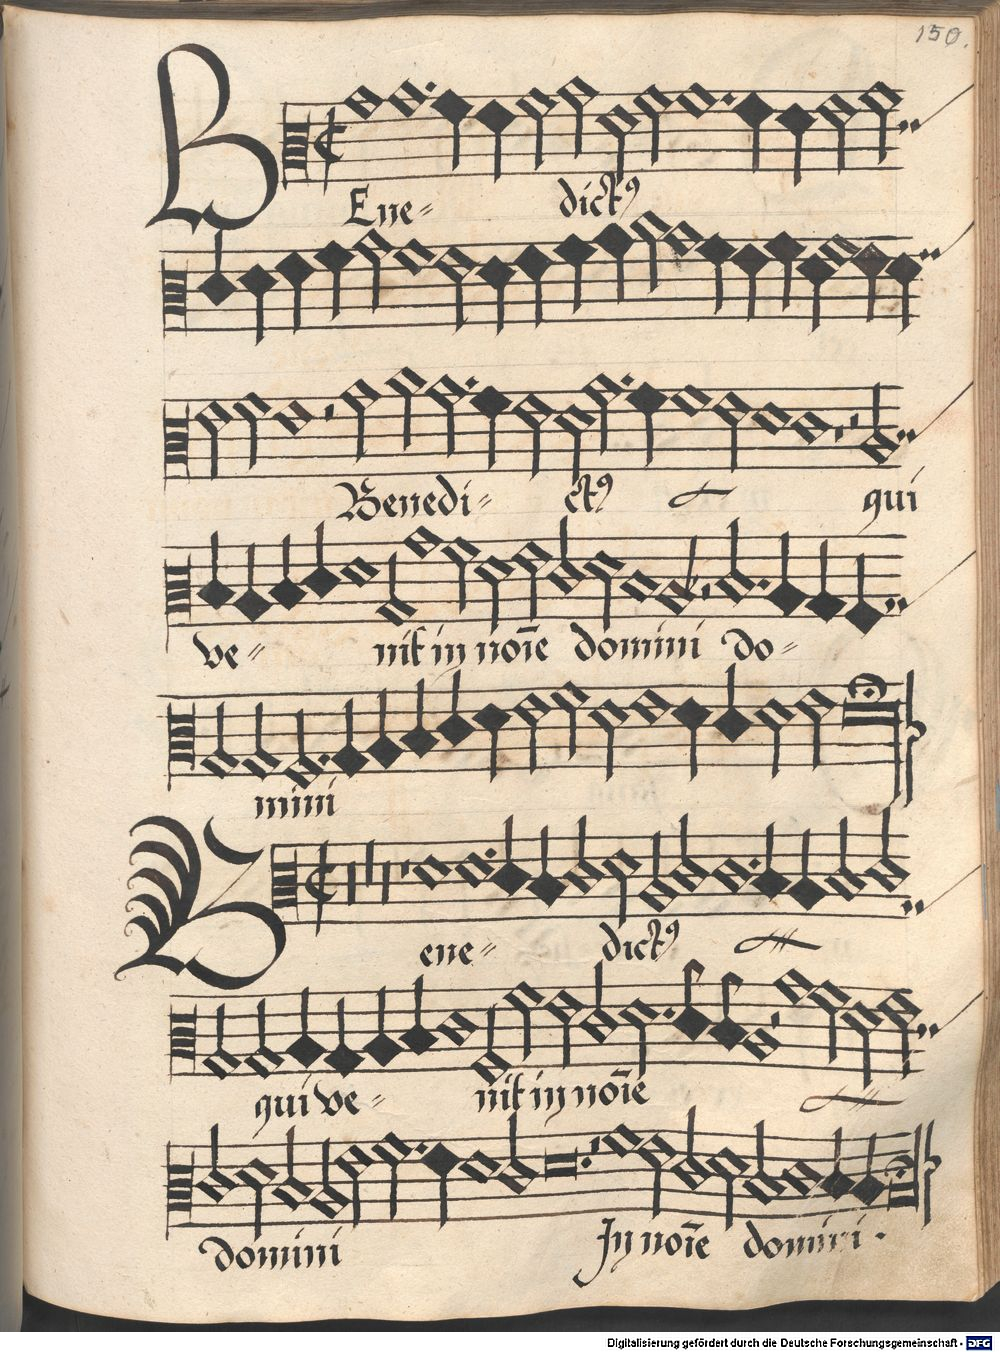 150.
BEne= dictꝰ
Benedi= ctꝰ qui
ve= nit in noīe domini do=
mini
Bene= dictꝰ
qui ve= nit in noīe
domini In noīe domini.
Digitalisierung gefördert durch die Deutsche Forschungsgemeinschaft - DFG